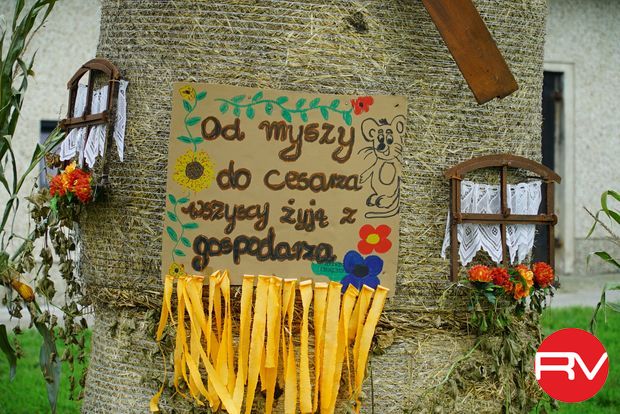 Od myszy
do cesarza
wszyscy żyją z
gospodarza
RV